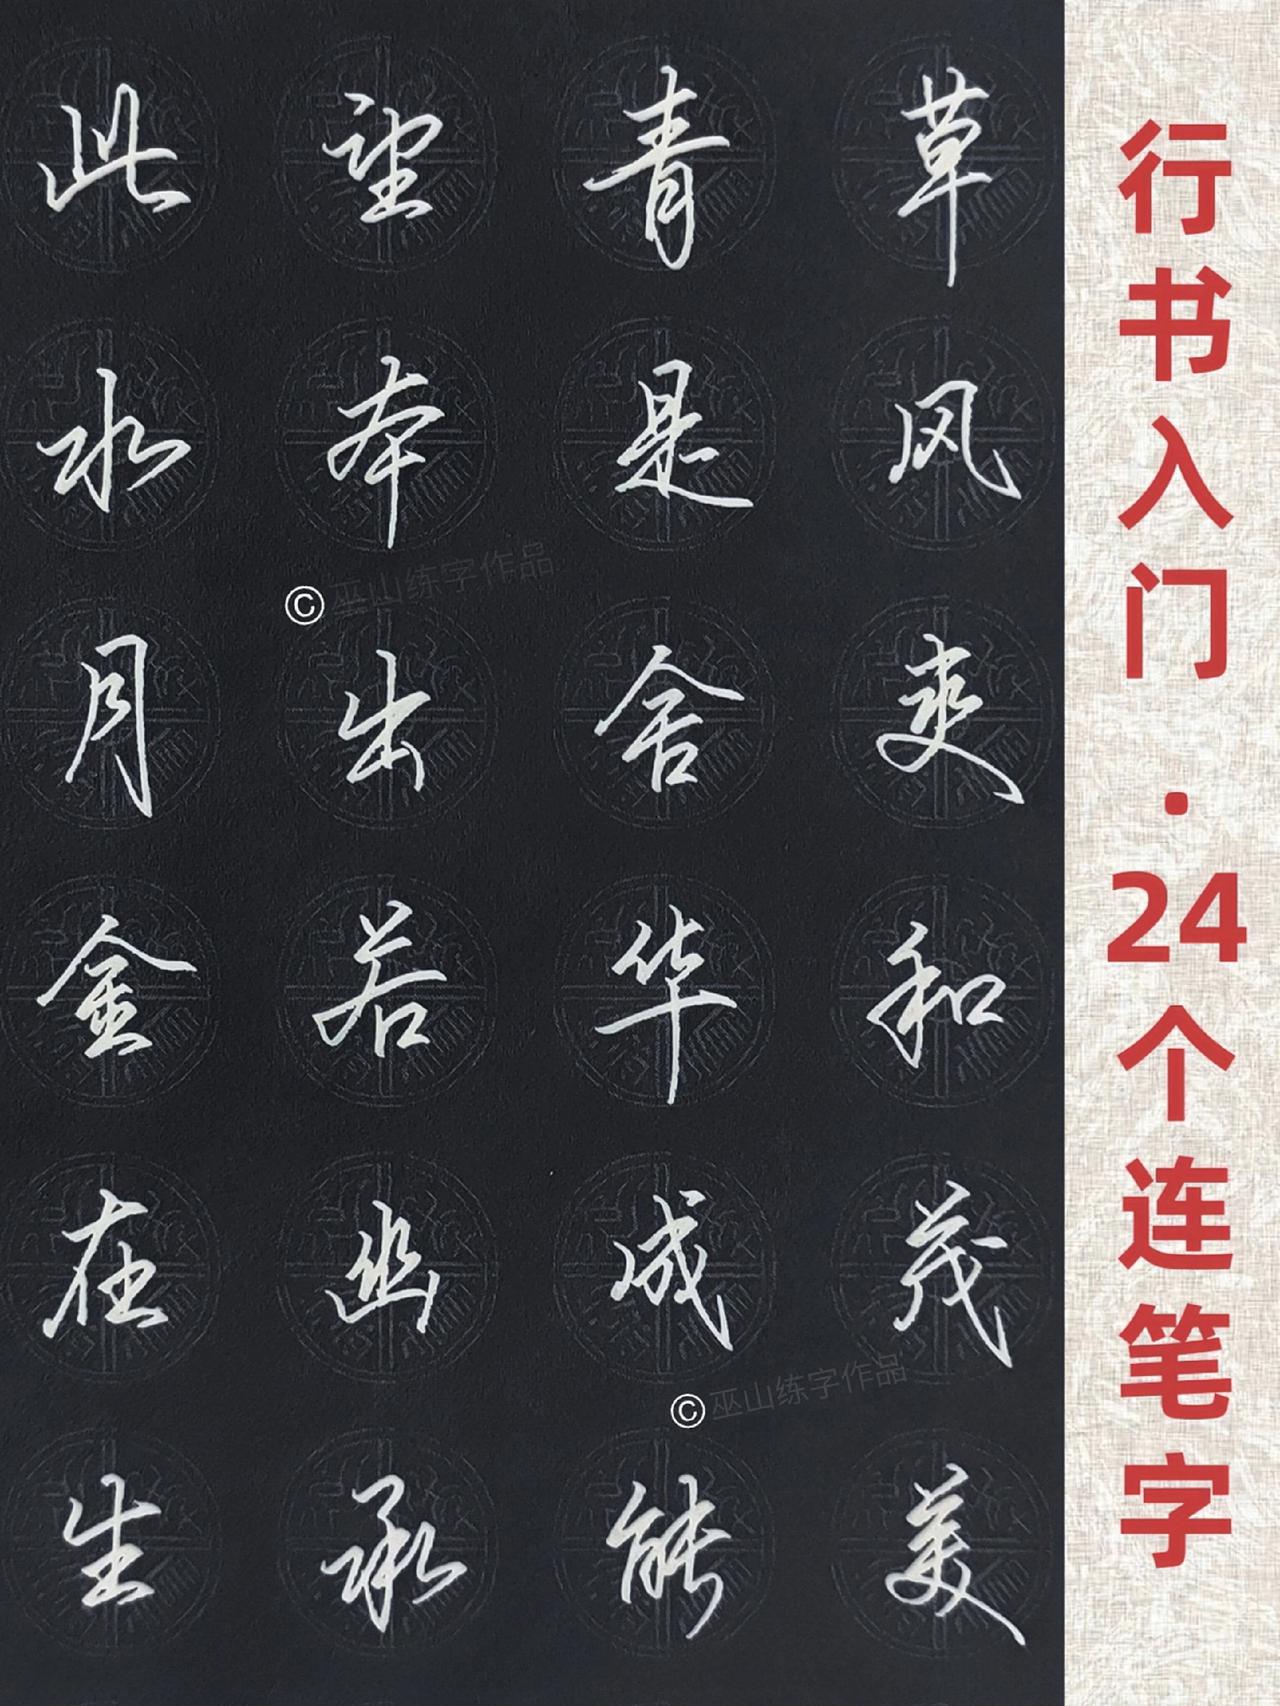 此望青草
水本是风
月出舍爽
金若华和
在幽成茂
生承能美
行书入门·24个连笔字
©巫山练字作品
©巫山练字作品